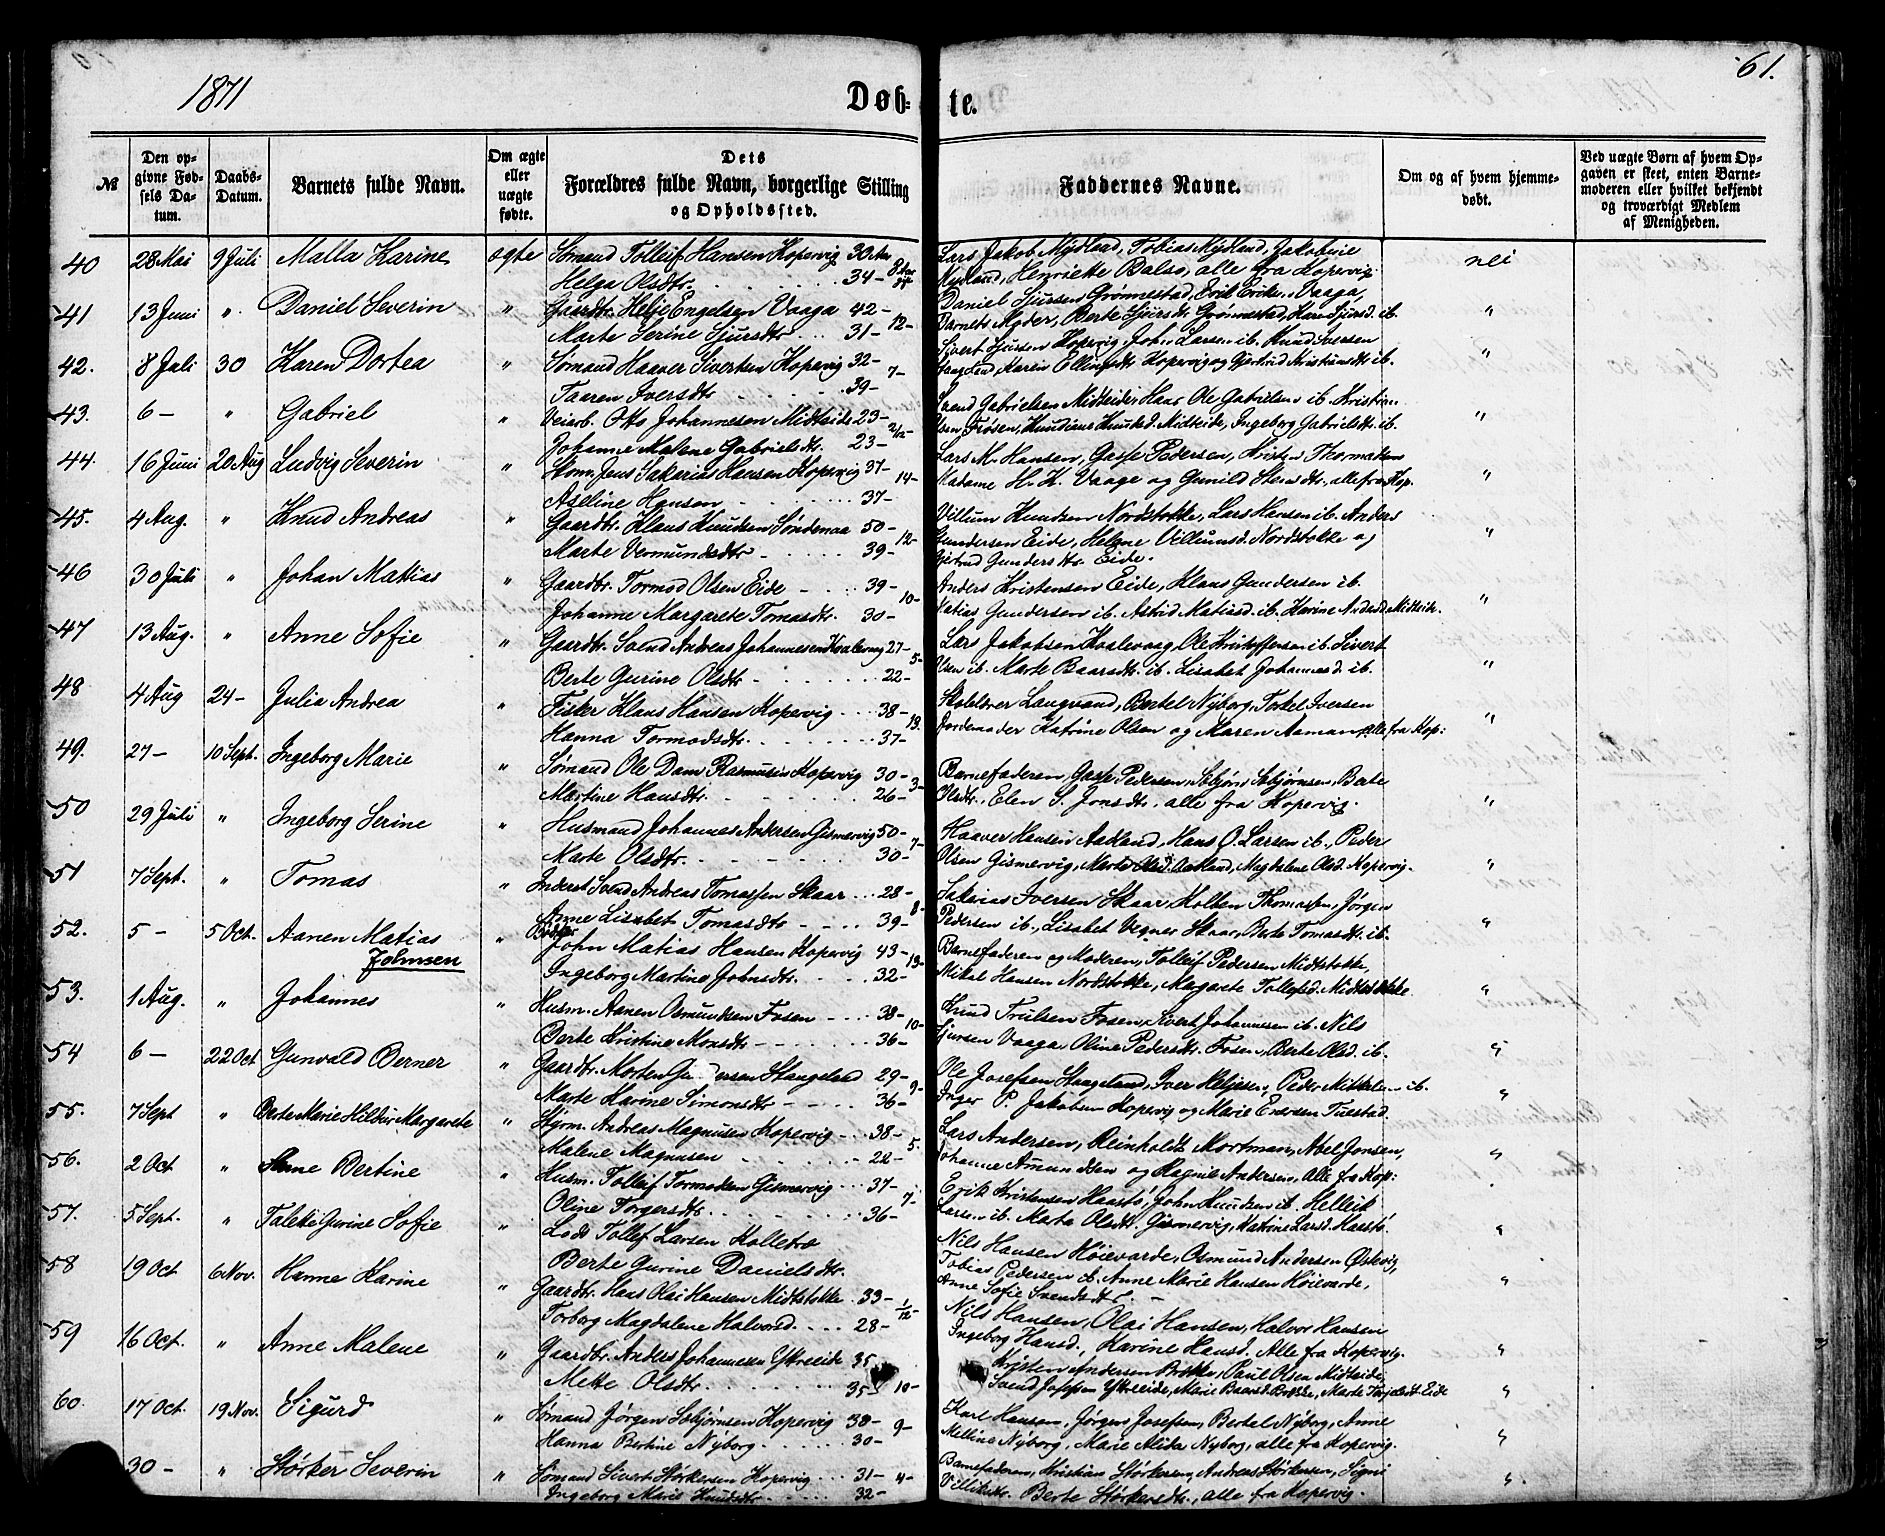 1871
Døb-
te.
61.
№
Den opgivne Fødsels Datum.
Daabs-Datum.
Barnets fulde Navn.
Om ægte eller uægte fødte.
Dets Forældres fulde Navn, borgerlige Stilling og Opholdssted.
Faddernes Navne.
Om og af hvem hjemmedøbt.
Ved uægte Børn af hvem Opgaven er skeet, enten Barnemoderen eller hvilket bekjendt og troværdigt Medlem af Menigheden.
40 28 Mai 9 Juli Malla Karine ægte Sømand Tolleif Hansen Kopervig 30 Aar
Helga Olsdtr. 34 -
Lars Jakob Mydland, Tobias Mydland, Jakobine
Mydland, Henriette Balso, alle fra Kopervig. nei
41 13 Juni " Daniel Severin " Gaardbr. Helje Engelsen Vaaga 42 - 12 -
Marte Serine Sjursdtr. 31 -
Daniel Sjursen Grønnestad, Erik Eriks. Vaaga,
Barnets Moder, Berte Sjursdtr. Grønnestad, ib. "
42. 8 Juli 30 Karen Dortea " Sømand Haaver Sivertsen Kopervig 32 - 7 -
Taaren Iversdtr. 39 -
Sivert Sjursen Kopervig, John Larsen ib. Knud Iversen
Karen Ellingsdtr. Kopervig og Gjertrud Kristiansdtr. ib. "
43. 6 - " Gabriel " Veiarb. Otto Johannesen Midteide 23 - 2/12 -
Johanne Malene Gabrielsdtr. 23 -
Svend Gabrielsen Midteide, Ole Gabrielsen ib. Kristian
Midteide, Ingeborg Gabrielsdtr. ib. "
44. 16 Juni 20 Aug Ludvig Severin " Jens Sakarias Hansen Kopervig 37 - 14 -
Aseline Hansen 37 -
Lars M. Hansen, Gasse Pedersen, Kristen Thormodsen
Madame H. K. Vaage og Gunild Stensdtr., alle fra Kop. "
45. 4 Aug. " Knud Andreas " Gaardbr. Klaus Knudsen Søndenaa 50 - 12 -
Marte Vermundsdtr. 39 -
Villum Knudsen Nordstokke, Lars Hansen ib. Anders
Gundersen Eide, Helene Villumsd. Nordstokke og
Gjertrud Gundersdtr. Eide. "
46 30 Juli " Johan Matias " Gaardbr. Tormod Olsen Eide 39 - 10 -
Johanne Margarete Tomasdtr. 30 -
Anders Kristensen Eide, Klaus Gundersen ib.
Matias Gundersen ib. Astrid Matiasd. ib. Karine Midteide. "
47 13 Aug. " Anne Sofie " Gaardbr. Svend Andreas Johannesen Kvalevaag 27 - 5 -
Berte Gurine Olsdtr. 22 -
Lars Jakobsen Kvalevaag, Ole Kristoffersen ib. Sivert
Olsen ib. Marte Baarsdtr. ib. Lisabet Johannesd. ib. "
48 4 Aug 24 - Julia Andrea " Fisker Klaus Hansen Kopervig 38 - 13.
Hanna Tormodsdtr. 37 -
Skolelærer Langvand, Bertel Nyborg, Torkel Iversen
Jordemoder Katrine Olsen og Maren Aaman, alle fra Kop: "
49. 27 - 10 Sept. Ingeborg Marie " Sømand Ole Dam Rasmusen Kopervig 30 - 3 -
Martine Hansdtr. 26 -
Barnefaderen, Gasse Pedersen, Berte
Olsdtr., Elen S. Jonsdtr. alle fra Kopervig. "
50 29 Juli " Ingeborg Serine " Husmand Johannes Andersen Gismervig 50 - 7 -
Marte Olsdtr. 30 -
Haaver Hansen Aadland, Hans O. Larsen ib., Peder
Olsen Gismervig, Marte Olsd. Aadland, Magdalene Olsd. Kopervig. "
51 7 Sept. " Tomas " Inderst Svend Andreas Tomassen Skaar 28 - 8 -
Anne Lisabet Tomasdtr. 39 -
Sakarias Iversen Skaar, Thomassen, Jørgen
Pedersen ib., Lisabet Skaar, Berte Tomasdtr. ib. "
52. 5 - 5 Oct. Aanen Matias
Johnsen " Bødker
John Matias Hansen Kopervig 43 - 13 -
Ingeborg Martine Johnsdtr. 32 -
Barnefaderen og Moderen, Tolleif Pedersen Midtstokke,
Mikal Hansen Nordstokke, Margarete Tollefsd. Midtstokke. "
53. 1 Aug. " Johannes " Husm. Aanen Osmundsen Fosen 38 - 10 -
Berte Kristine Monsdtr. 36 -
Knud Trulsen Fosen, Sivert Johannesen ib. Nils
Sjursen Vaaga, Oline Pedersdtr. Fosen, Berte Olsd. ib. "
54 6 - 22 Oct Gunvald Berner " Gaardbr. Morten Stangeland 29 - 9 -
Marte Karine Simonsdtr. 36 -
Ole Josefsen Stangeland, Iver Heljesen, Peder ib.
Inger P. Jakobsen Kopervig og Marie Enersen Tuestad. "
55. 7 Sept " Berte Marie Hildur Margarete " Styrm. Andreas Magnusen Kopervig 38 - 5.
Malene Magnusen 22 -
Lars Andersen, Reinholdt Mortman, Abel Jonsen,
Johanne Amundsen og Ragnil Andersen, Alle fra Kop: "
56. 2 Oct " Anne Bertine " Husm. Tolleif Tormodsen Gismervig 37 - 7 -
Oline Torgersdtr. 36 -
Erik Kristensen Haastø, John Knudsen ib. Helleik
Larsen ib. Marta Olsdtr. Gismervig, Katrine Larsd. Haastø. "
57. 5 Sept. " Taletta Gurine Sofie " Lods Tollef Larsen Kolletro
Berte Gurine Danielsdtr.
Nils Hansen Høievarde, Osmund Andersen Østevig,
Tobias Pedersen ib. Anne Marie Hansen Høievarde,
Anne Sofie Svendsdtr. "
58 19 Oct 6 Nov. Hanne Karine " Gaardbr. Hans Olai Hansen Midtstokke 33 - 1/12
Torborg Magdalene Halvorsd. 28 -
Nils Hansen, Olai Hansen, Halvor Hansen
Ingeborg Hansd., Karine Hansd. Alle fra Kopervig. "
59 16 Oct. " Anne Malene " Gaardbr. Anders Johannesen Ytreeide 35 10 -
Mette Olsdtr. 35 -
Kristen Andersen Brekke, Paul Olsen Midteide,
Svend Josefsen Ytreeide, Marie Brekke, Marte Eide "
60. 17 Oct. 19 Nov. Sigurd " Sømand Jørgen Kopervig 38 - 9 -
Hanna Bertine Nyborg. 30 -
Karl Hansen, Jørgen Josefsen, Bertel Nyborg, Anne
Melline Nyborg, Marie Alida Nyborg, alle fra Kopervig. "
30 - " Størker Severin " Sømand Sivert Størkersen Kopervig 31 - 4 -
Ingeborg Marie Knudsdtr. 32 -
Barnefaderen, Kristian Størkersen, Andreas Størkersen, Signi
Berte Størkersdtr., alle fra Kopervig. "